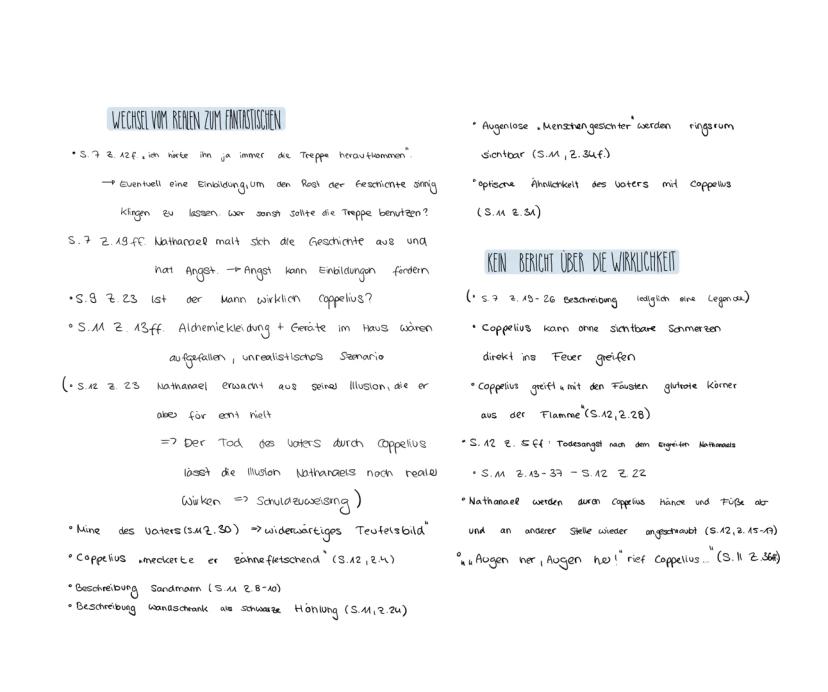 WECHSEL VOM REALEN ZUM FANTASTISCHEN
• S. 7 Z. 12f. „ich hörte ihn ja immer die Treppe heraufkommen".
→ Eventuell eine Einbildung, um den Rest der Geschichte sinnig
klingen zu lassen. Wer sonst sollte die Treppe benutzen?
S. 7 Z. 19 ff. Nathanael malt sich die Geschichte aus und
hat Angst. → Angst kann Einbildungen fördern
• S. 9 Z. 23 Ist der Mann wirklich Coppelius?
• S. 11 Z. 13ff. Alchemiekleidung + Geräte im Haus wären
aufgefallen, unrealistisches Szenario
(• S. 12 Z. 23 Nathanael erwacht aus seiner Illusion, die er
aber für echt hielt
=> Der Tod des Vaters durch Coppelius
lässt die Illusion Nathanaels noch realer
Wirken => Schuldzuweisung)
• Mine des Vaters (S. 11 Z. 30) => widerwärtiges Teufelsbild"
• Coppelius „meckerte er zähnefletschend" (S. 12, Z. 4)
• Beschreibung Sandmann (S. 11 Z. 8-10)
• Beschreibung Wandschrank als schwarze Höhlung (S. 11, Z. 24)
• Augenlose „Menschengesichter" werden ringsum
sichtbar (S. 11, Z. 34f.)
• optische Ähnlichkeit des Vaters mit Coppelius
(S. 11 Z. 31)
KEIN BERICHT ÜBER DIE WIRKLICHKEIT
(• S. 7 Z. 19-26 Beschreibung lediglich eine Legende)
• Coppelius kann ohne sichtbare Schmerzen
direkt ins Feuer greifen
• Coppelius greift „mit den Fäusten glutrote Körner
aus der Flamme" (S. 12, Z. 28)
• S. 12 Z. 5 ff: Todesangst nach dem Ergreifen Nathanaels
• S. 11 Z. 13-37 - S. 12 Z. 22
• Nathanael werden durch Coppelius Hände und Füße ab-
und an anderer Stelle wieder angeschraubt (S. 12, Z. 15-17)
• „„Augen her, Augen her!" rief Coppelius..." (S. 11 Z. 36f)